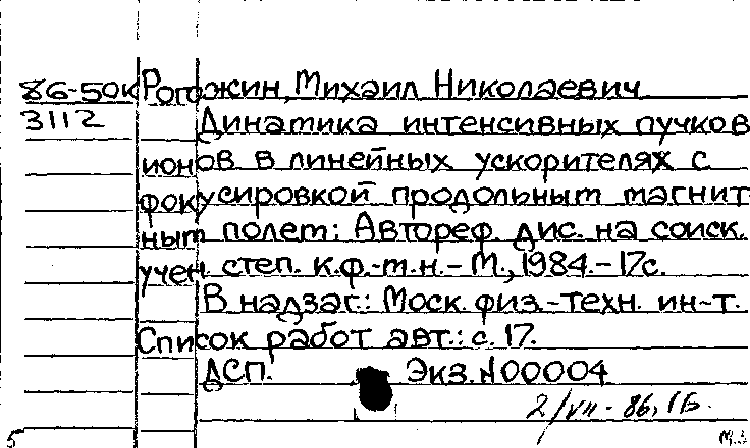 86-50к Рогожин, Михаил Николаевич
3112 Динамика интенсивных пучков
ионов в линейных ускорителях с
фокусировкой продольным магнит
ным полем: Автореф. дис. на соиск.
учен. степ. к.ф.-м.н. - М., 1984. - 17с.
В надзаг.: Моск. физ.-техн. ин-т.
Список работ авт.: с. 17.
ДСП. Экз. N00004
2/VII - 86, 1Б.
5